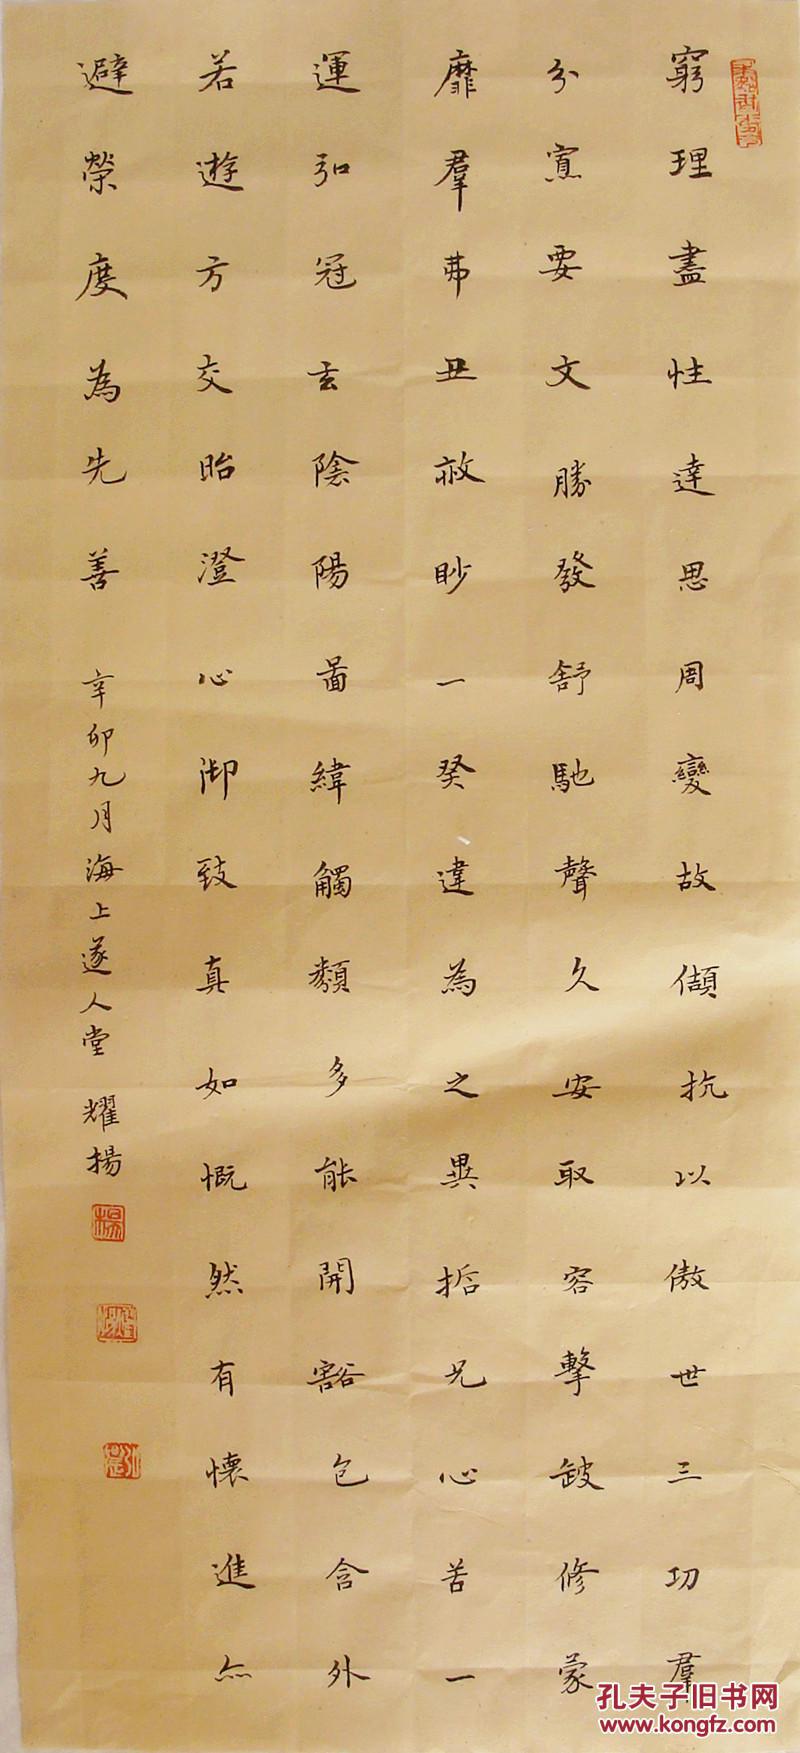 窮理盡性達思周變故儃抗以傲世三功羣
分寘要文勝發舒馳聲久安取容擊鈹修蒙
靡羣弗丑敘眇一癸違為之異括兄心苦一
運弘冠玄陰陽啚緯觸類多能開豁包含外
若遊方交眙澄心御致真如慨然有懷進亦
避榮度為先善
辛卯九月海上遂人堂 耀揚
孔夫子旧书网
www.kongfz.com